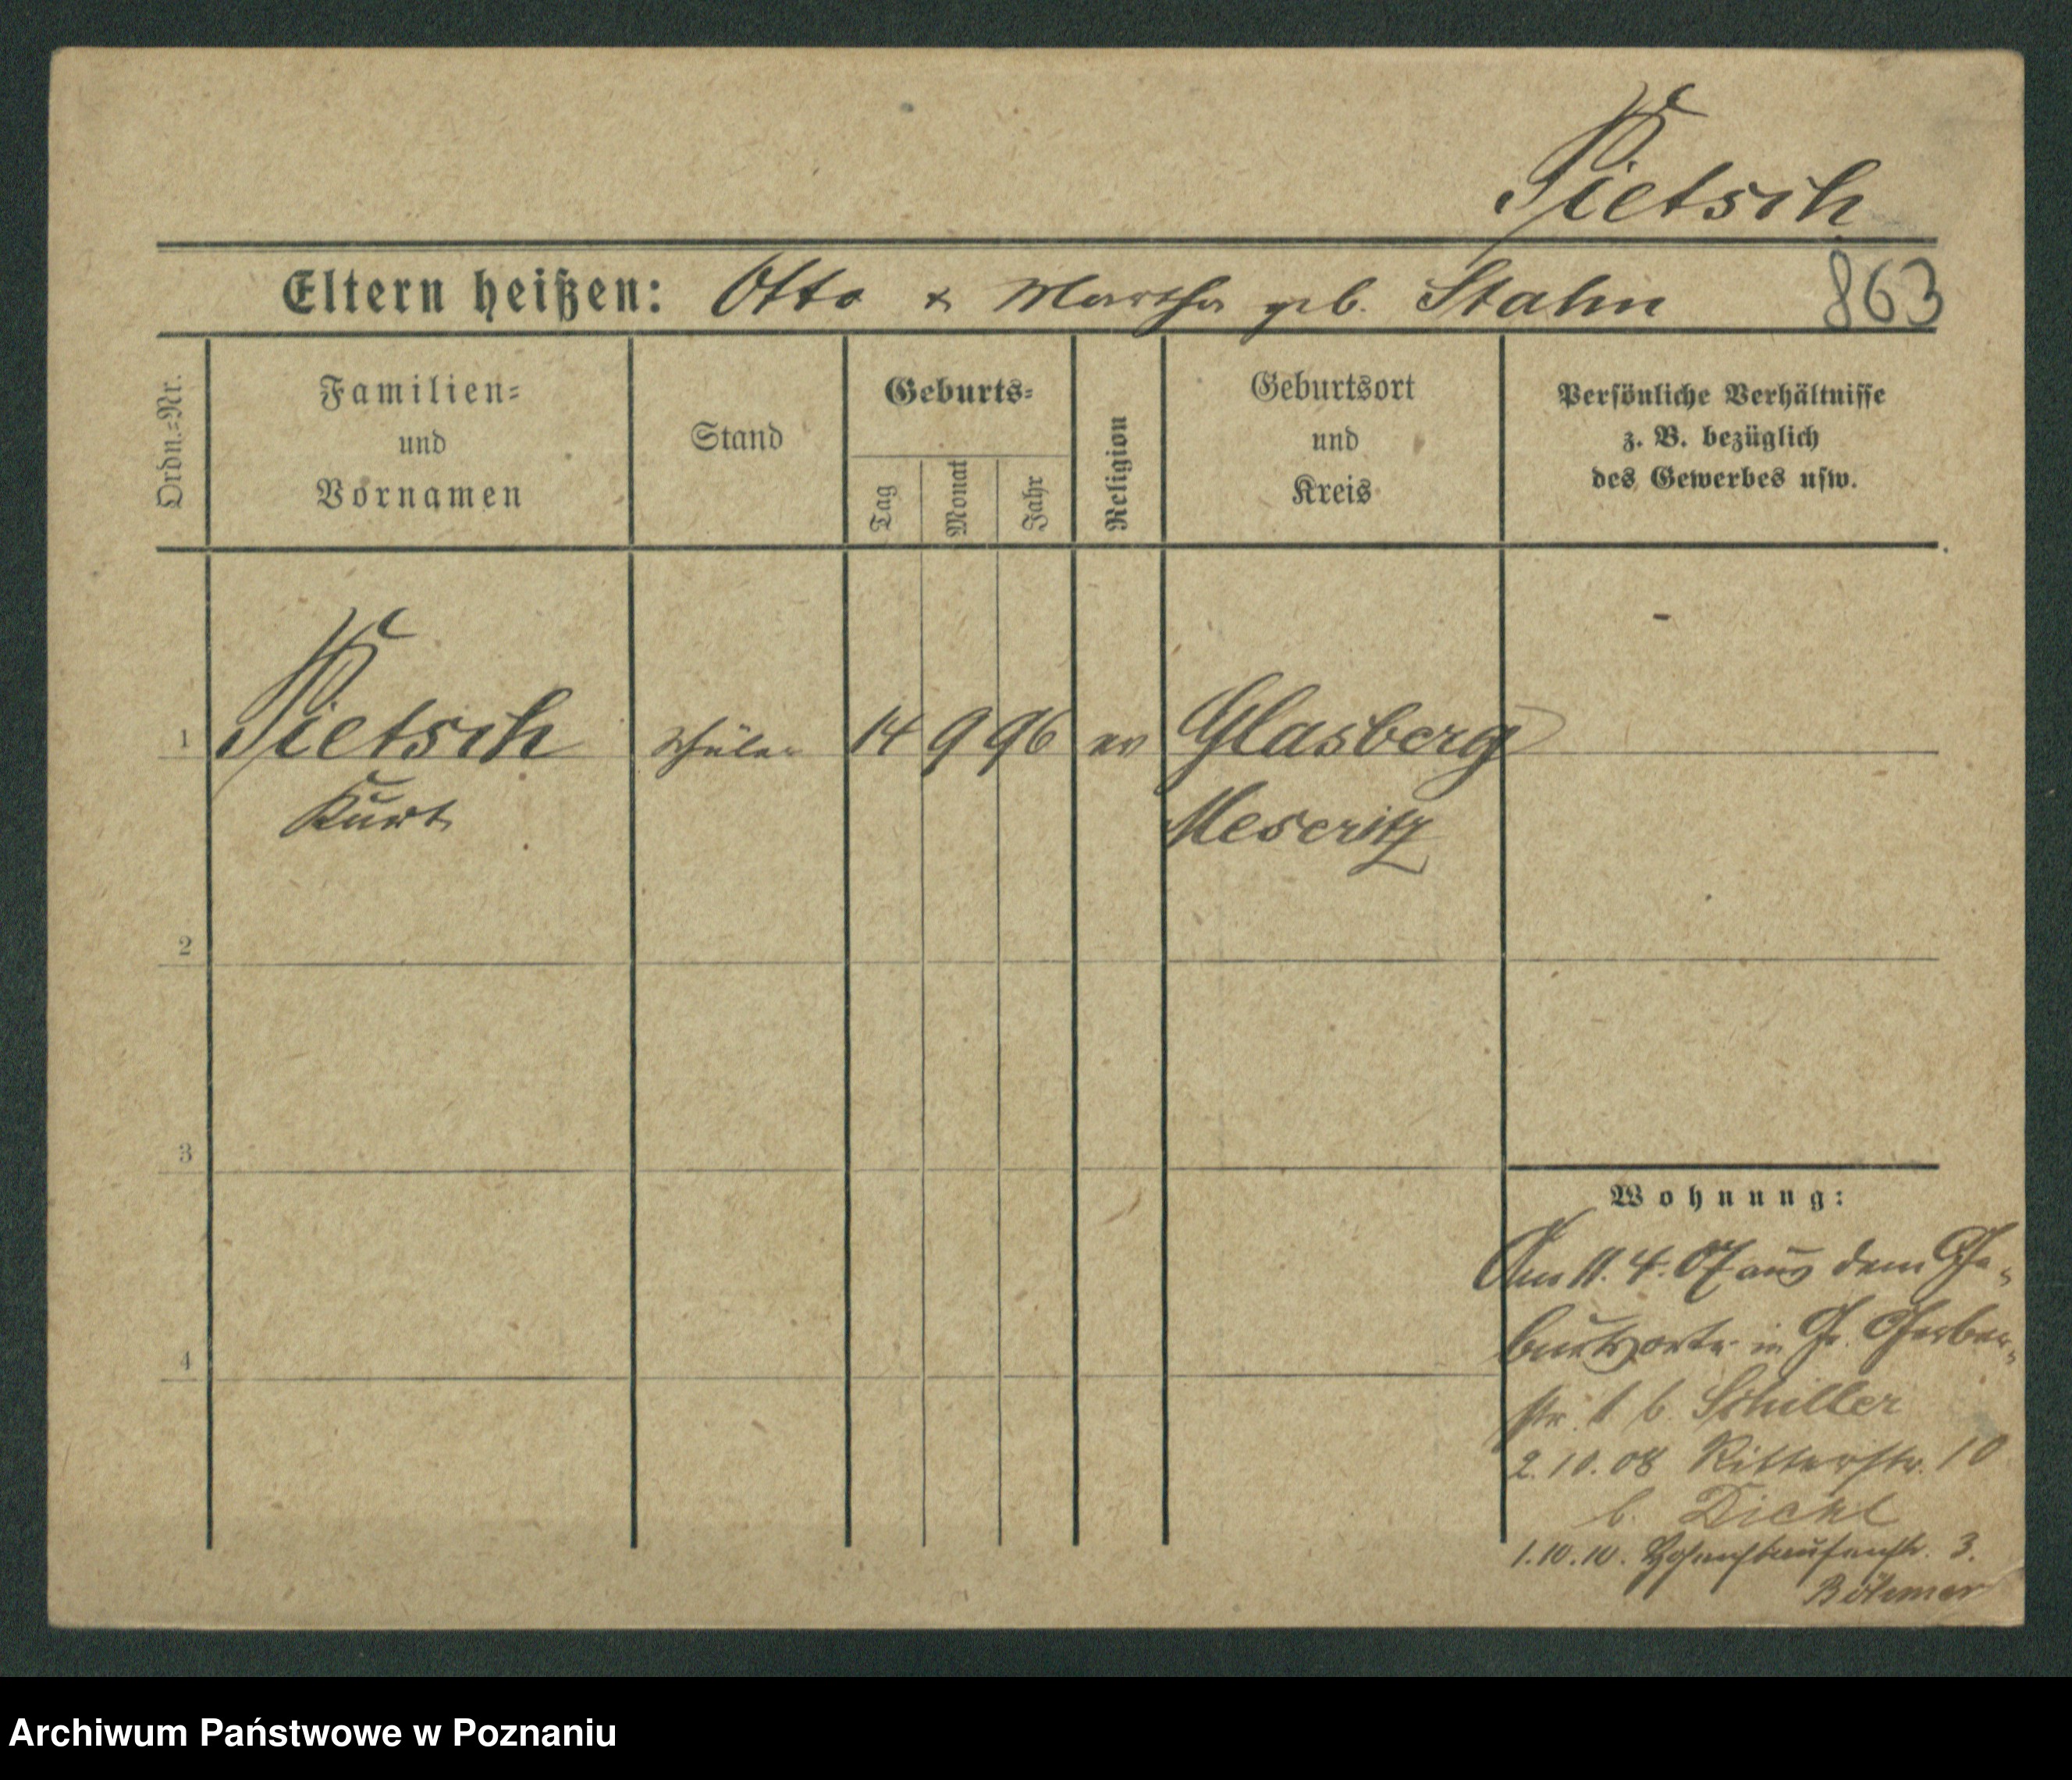 Pietsch
Eltern heißen: Otto & Martha geb. Stahn 863
Ordn.=Nr.
Familien=
und
Vornamen
Stand
Geburts=
Tag
Monat
Jahr
Religion
Geburtsort
und
Kreis
Persönliche Verhältnisse
z. B. bezüglich
des Gewerbes usw.
1 Pietsch Schüler 14 9 96 ev Glasberg
Kurt Meseritz
2
3
4
Wohnung:
Am 11. 4. 07 aus dem Ge-
burtsorte in Gr. Gerber-
str. 1 b. Schiller
2.10.08 Ritterstr. 10
b. Diehl
1.10.10. Hohenstaufenstr. 3.
Archiwum Państwowe w Poznaniu